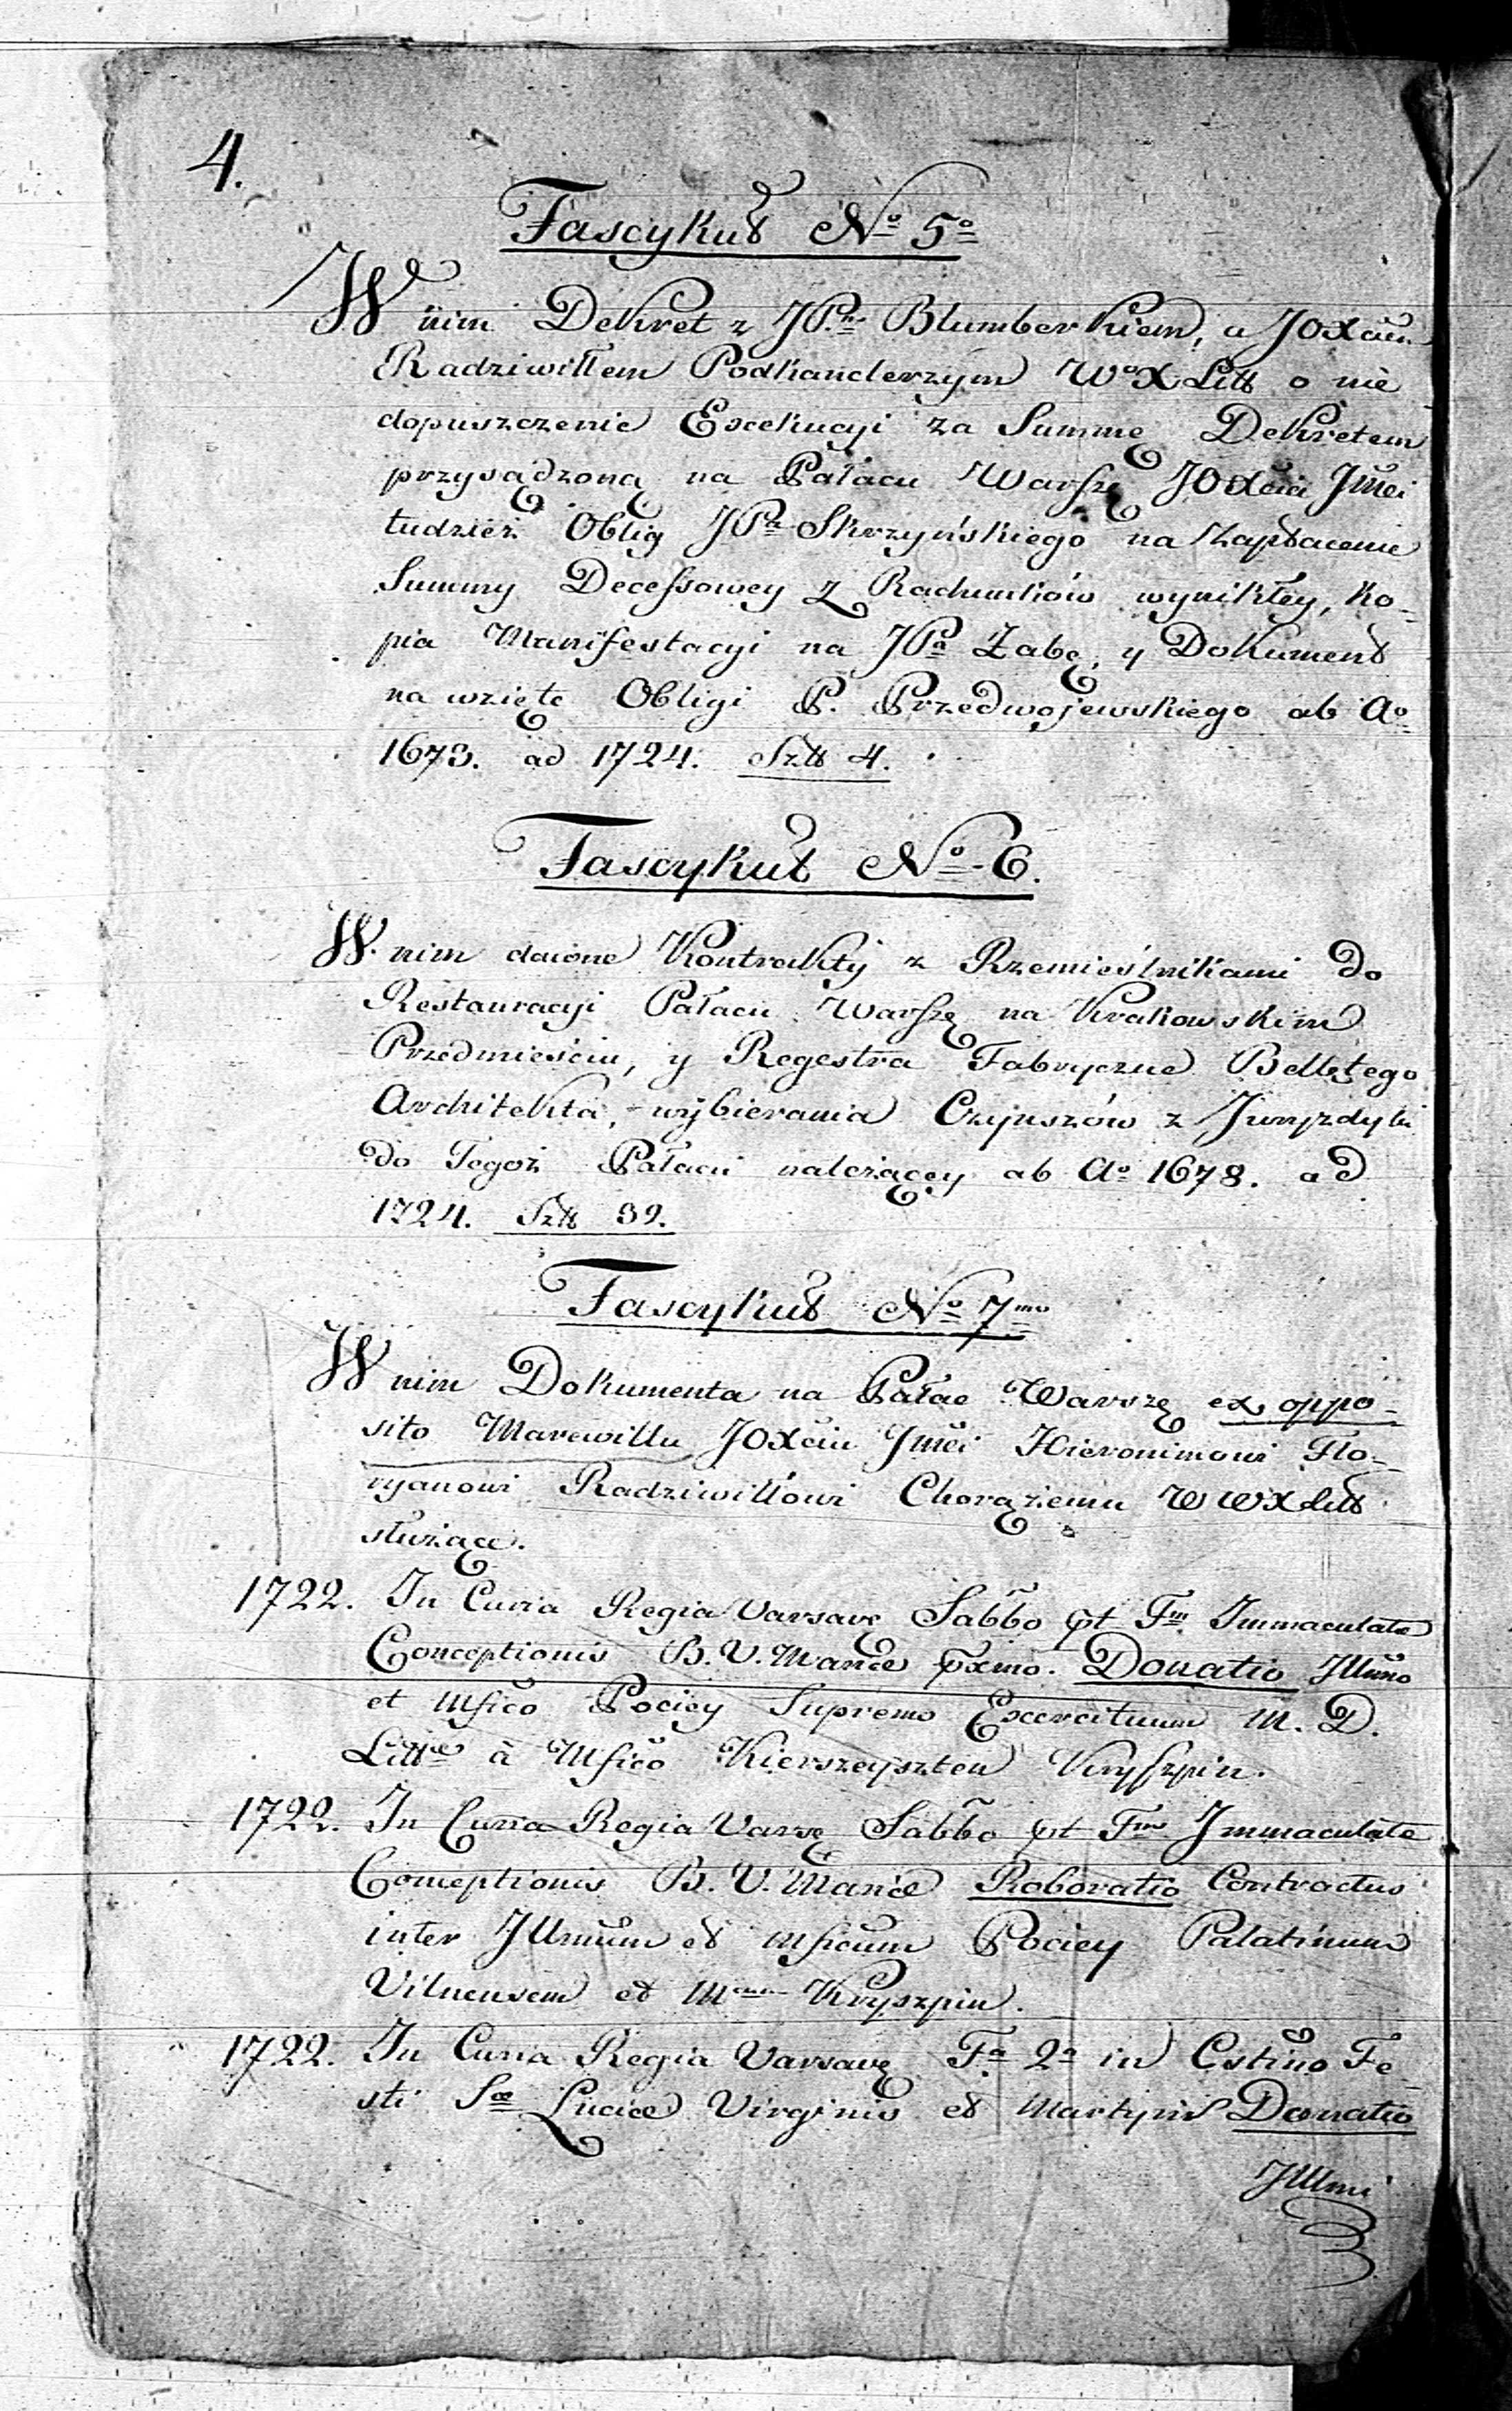 4.
Fascykuł No 5o
W nim Dekret z JP.m Blumberkiem, a JOXciem
Radziwiłłem Podkanclerzym WoX Litt o nie
dopuszczenie Exekucyi za Summę Dekretem
przysądzoną na Pałacu Warszę JOXcia Jmci
tudzież Oblig JPa Skrzyńskiego na Zapłacenie
Summy Decessowey z Rachunków wynikłey, Ko-
pia Manifestacyi na JPa Żabę, y Dokument
na wzięte Obligi P. Przedwojewskiego ab Ao
1673. ad 1724. Sztt 4.
Fascykuł No 6.
W nim dawne Kontrakty z Rzemieślnikami do
Restauracyi Pałacu Warszę na Krakowskim
Przedmieściu, y Regestra Fabryczne Bellętego
Architekta, wybierania Czynszów z Juryzdyki
do Tegoż Pałacu należącęy ab Ao 1678. ad
1724. Sztt 39.
Fascykuł No 7mo
W nim Dokumenta na Pałac Warszę ex oppo-
sito Marewillu JOXciu Jmci Hieronimowi Flo-
ryanowi Radziwiłłowi Chorążemu W WX Litt
służące.
1722. In Curia Regia Varsavę Sabbo pt Fm Immaculatæ
Conceptionis B. V. Mariæ pxmo. Donatio Illmo
et Mfico Pociey Supremo Exercituum M. D.
Littæ à Mfico Kierszeyszten Kryszpin.
1722. In Curia Regia Varsę Sabbo pt Fm Immaculatæ
Conceptionis B. V. Mariæ Roboratio Contractus
inter Illmum et Mficum Pociey Palatinum
Vilnensem et Mcum Kryszpin.
1722. In Curia Regia Varsavę Fa 2a in Cstino Fe-
sti Sæ Luciæ Virginis et Martyris Donatio
Illmi